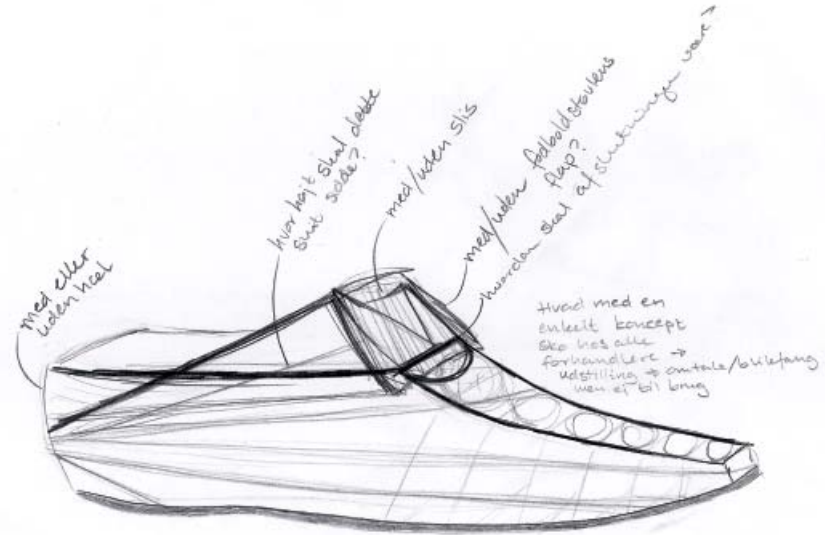 med eller
uden hæl
hvor højt skal dette
snit sidde?
med/uden slis
med/uden fodboldstøvlens
flap?
hvordan skal afslutningen være?
Hvad med en
enkelt koncept
sko hos alle
forhandlere →
udstilling → omtale/blikfang
men ej til brug